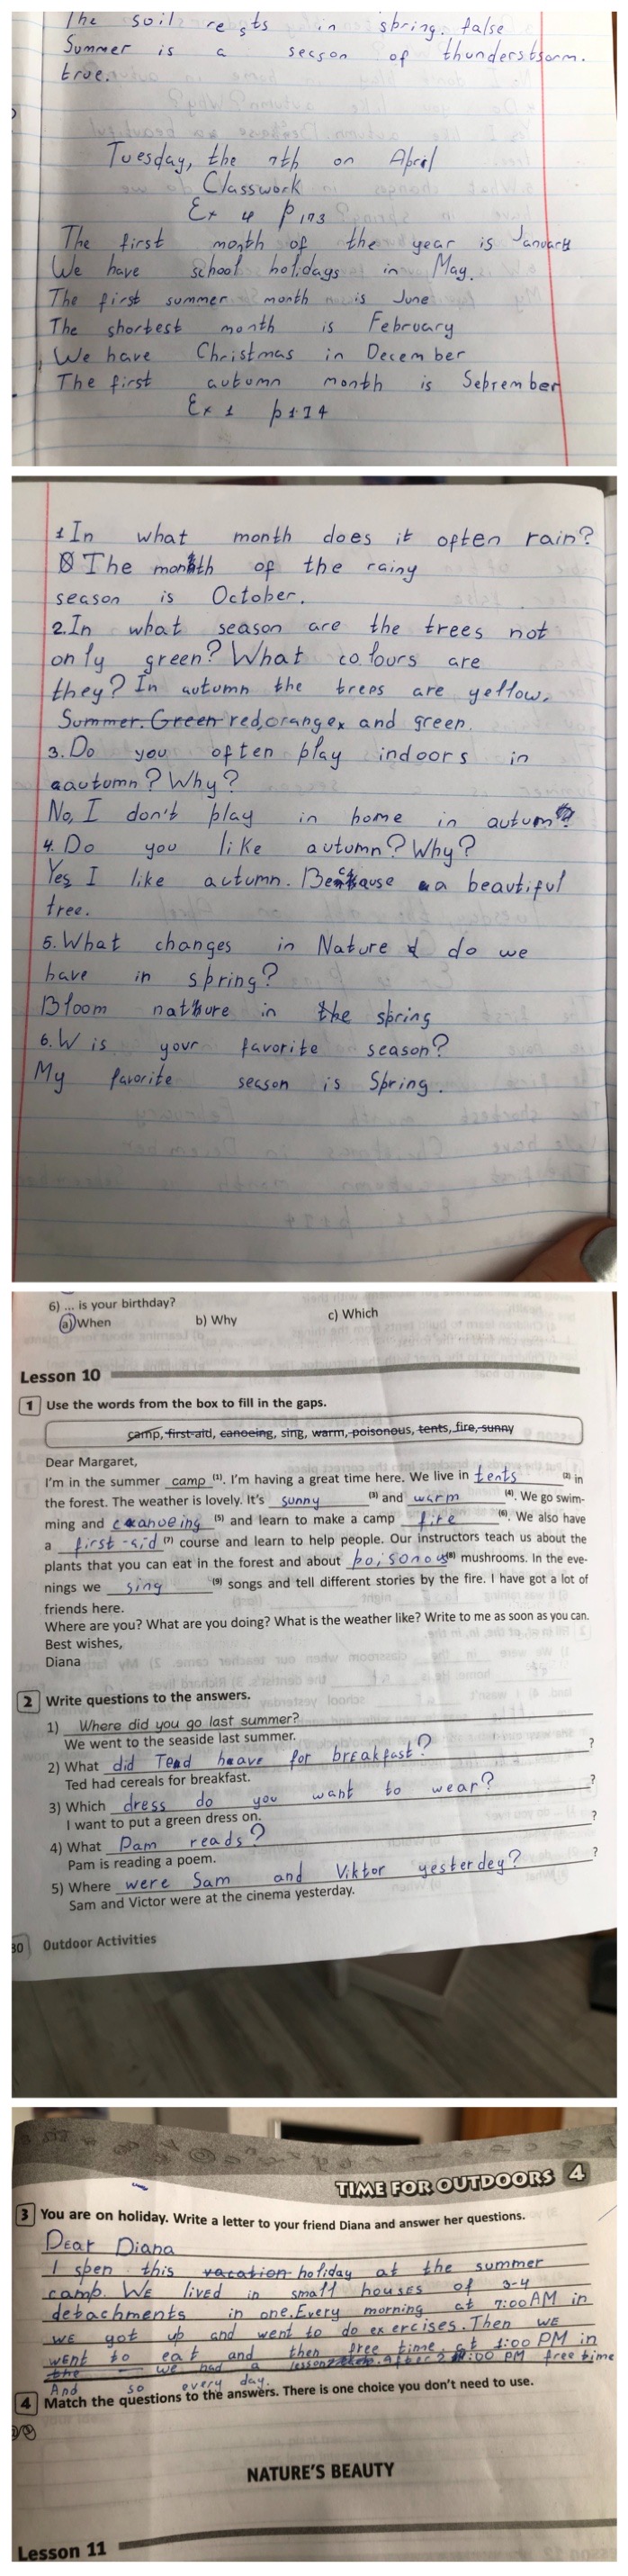 The soil rests in spring. false
Summer is a season of thunderstsorm.
true.
Tuesday, the 7th on April
Classwork
Ex 4 p 173
The first month of the year is January
We have school holidays in May.
The first summer month is June
The shortest month is February
We have Christmas in December
The first autumn month is Seprember
Ex 1 p174
1 In what month does it often rain?
The month of the rainy
season is October.
2. In what season are the trees not
only green? What colours are
they? In autumn the trees are yellow,
Summer. Green red, orange and green.
3. Do you often play indoors in
aautomn? Why?
No, I don't play in home in autum
4. Do you like autumn? Why?
Yes I like autumn. Because a beautiful
tree.
5. What changes in Nature do we
have in spring?
Bloom nathure in the spring
6. W is your favorite season?
My favorite season is Spring.
6) ... is your birthday?
a) When b) Why c) Which
Lesson 10
1 Use the words from the box to fill in the gaps.
camp, first-aid, canoeing, sing, warm, poisonous, tents, fire, sunny
Dear Margaret,
I'm in the summer camp (1). I'm having a great time here. We live in tents (2) in
the forest. The weather is lovely. It's sunny (3) and warm (4). We go swim-
ming and canoeing (5) and learn to make a camp fire (6). We also have
a first-aid (7) course and learn to help people. Our instructors teach us about the
plants that you can eat in the forest and about poisonous (8) mushrooms. In the eve-
nings we sing (9) songs and tell different stories by the fire. I have got a lot of
friends here.
Where are you? What are you doing? What is the weather like? Write to me as soon as you can.
Best wishes,
Diana
2 Write questions to the answers.
1) Where did you go last summer?
We went to the seaside last summer.
2) What did Tead heave for breakfast? ?
Ted had cereals for breakfast.
3) Which dress do you want to wear? ?
I want to put a green dress on.
4) What Pam reads? ?
Pam is reading a poem.
5) Where were Sam and Viktor yesterdey? ?
Sam and Victor were at the cinema yesterday.
80 Outdoor Activities
TIME FOR OUTDOORS 4
3 You are on holiday. Write a letter to your friend Diana and answer her questions.
Dear Diana
I spen this vacation holiday at the summer
camp. We lived in small houses of 3-4
detachments in one. Every morning at 7:00 AM in
we got up and went to do exercises. Then we
went to eat and then free time. at 1:00 PM in
the we had a lesson After 2:00 PM free time
And so every day.
4 Match the questions to the answers. There is one choice you don't need to use.
NATURE'S BEAUTY
Lesson 11